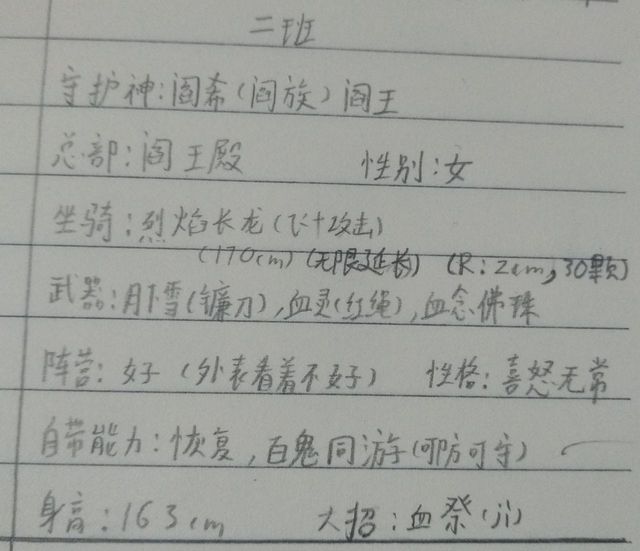 二班
守护神:阎希(阎族)阎王
总部:阎王殿 性别:女
坐骑:烈焰长龙(飞+攻击)
(170cm) (无限延长) (R:2cm,30颗)
武器:月下雪(镰刀),血灵(红绳),血念佛珠
阵营:好(外表看着不好) 性格:喜怒无常
自带能力:恢复,百鬼同游(可防可守)
身高:163cm 大招:血祭(jì)